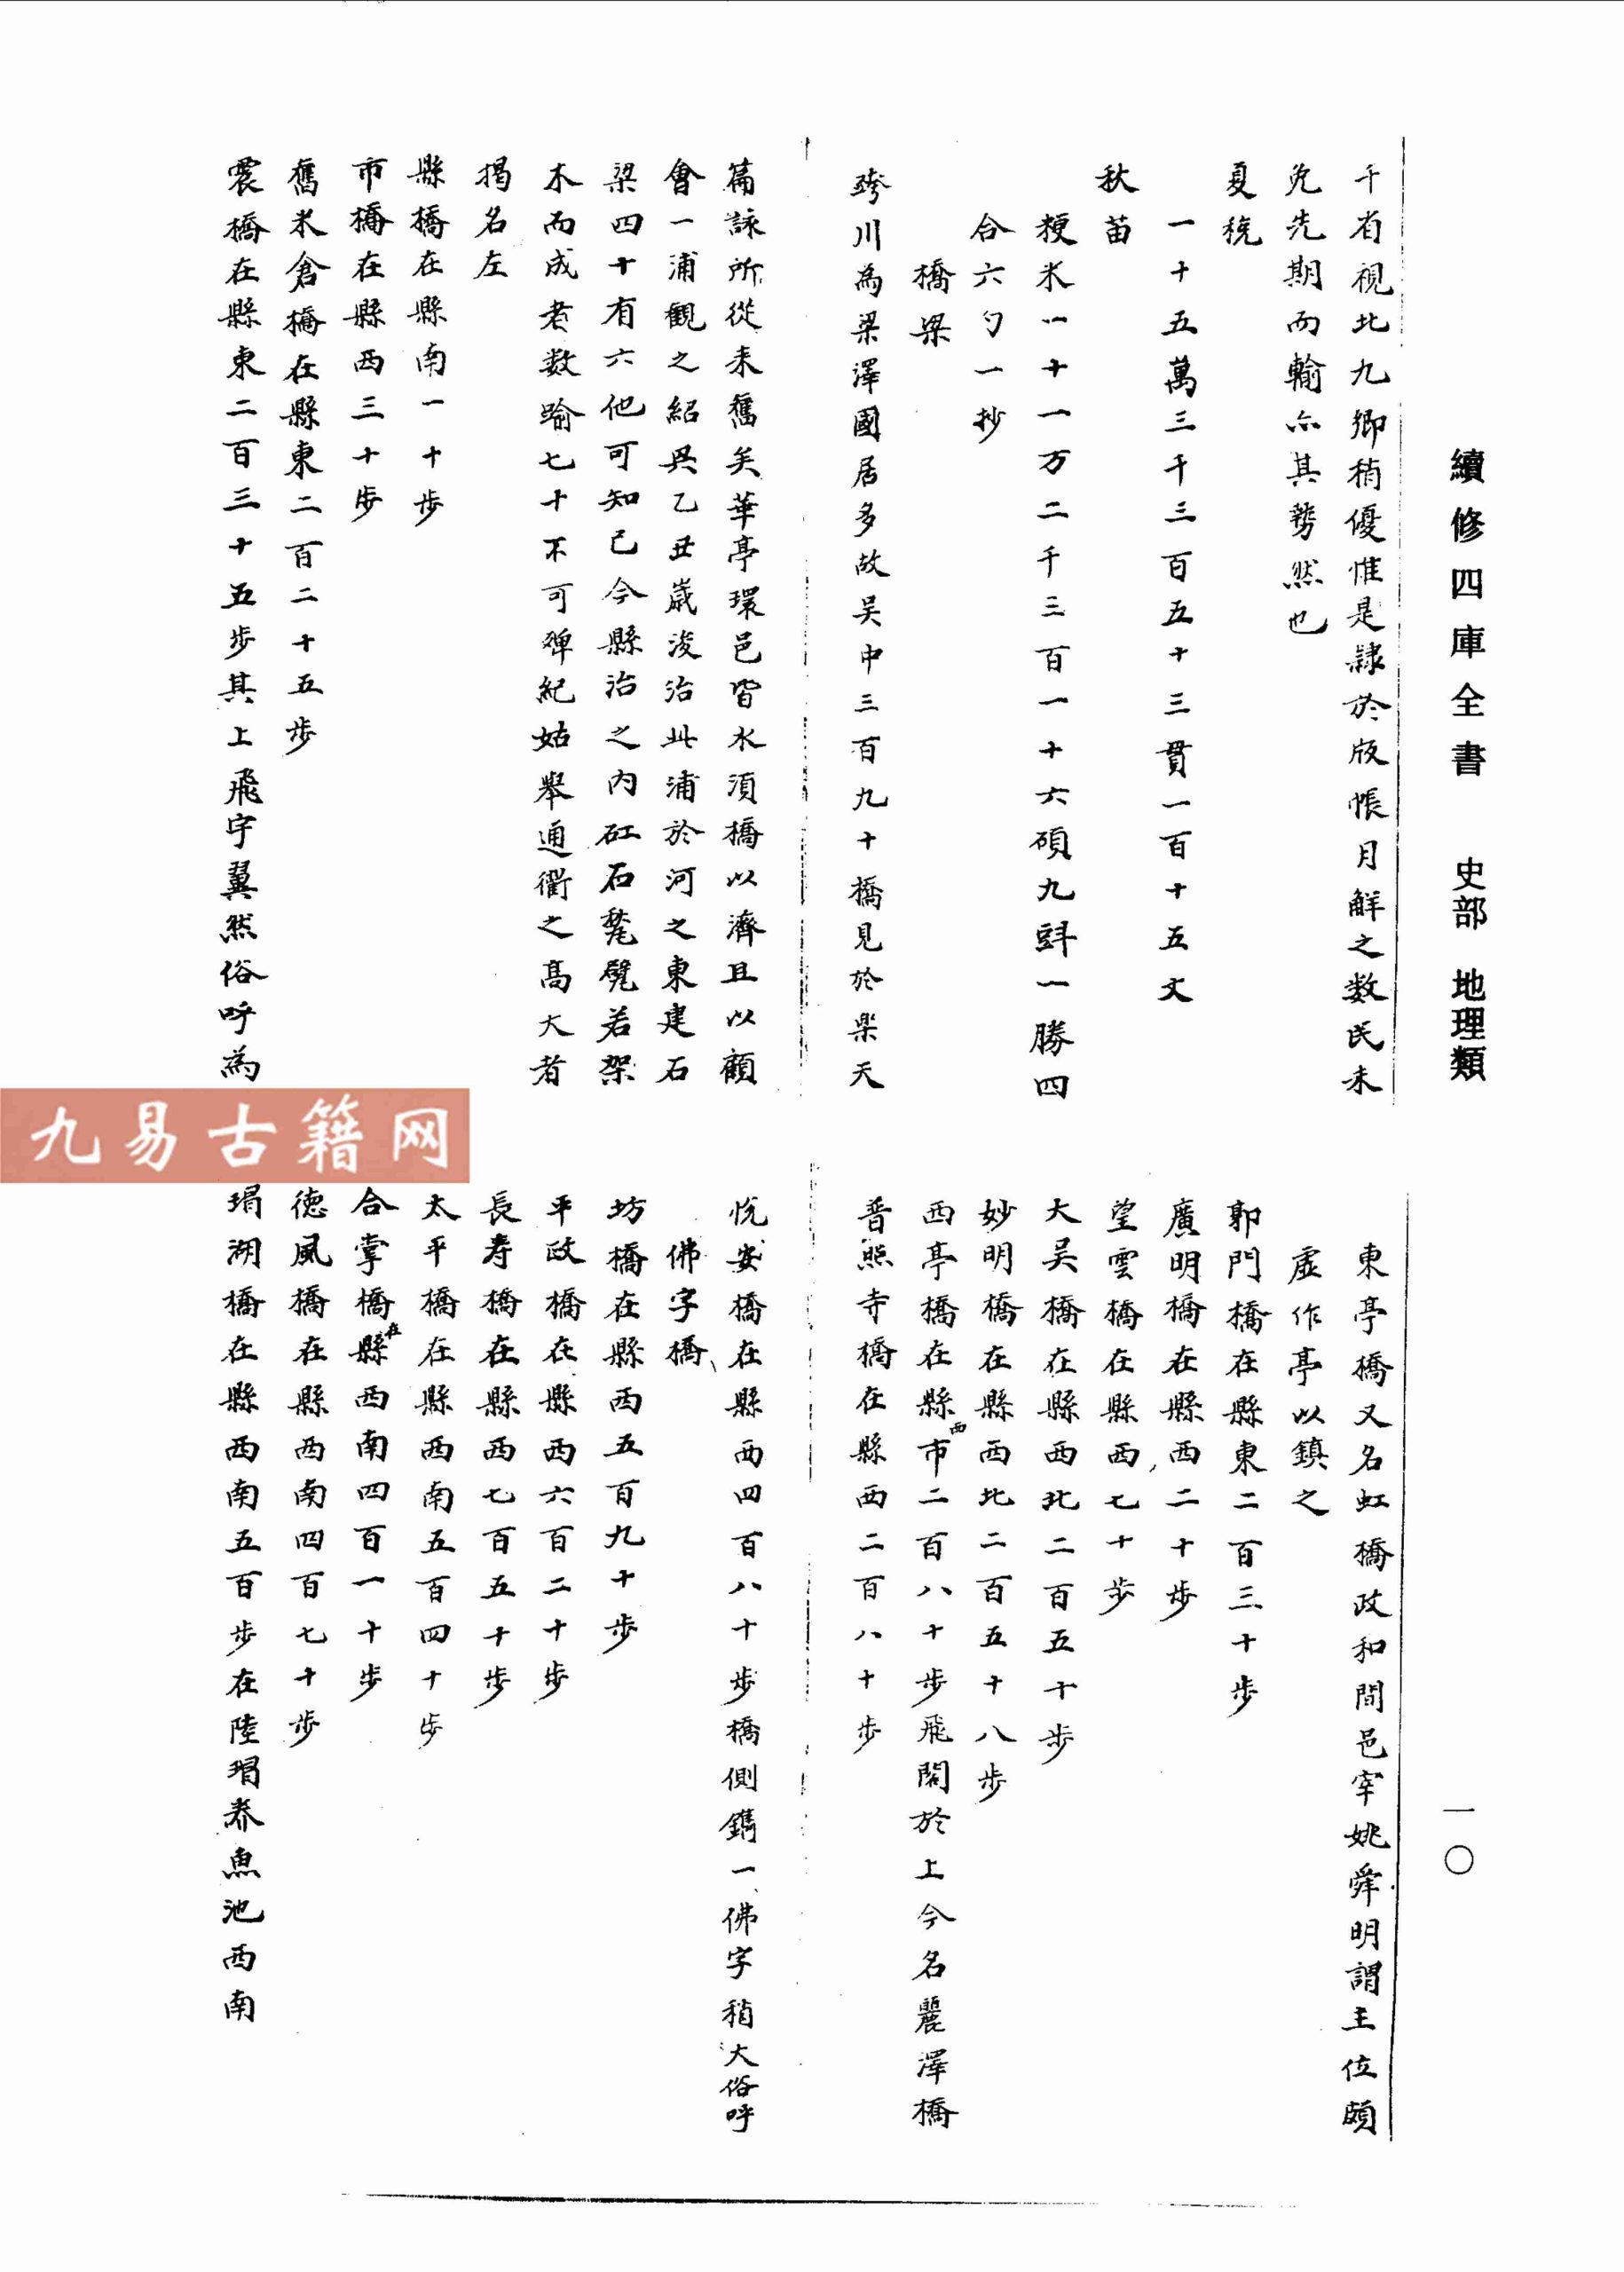 續修四庫全書 史部 地理類
一〇
千省視北九鄉稍優惟是隷於版帳月觧之数民未
免先期而輸亦其勢然也
夏税
一十五萬三千三百五十三貫一百十五文
秋苗
粳米一十一万二千三百一十六碩九㪷一勝四
合六勺一抄
橋梁
跨川為梁澤國居多故吴中三百九十橋見於楽天
篇詠所從来舊矣華亭環邑皆水須橋以濟且以顧
會一浦觀之紹興乙丑嵗浚治此浦於河之東建石
梁四十有六他可知已今縣治之内矼石甃甓若架
木而成者数踰七十不可殫紀姑舉通衢之髙大者
揭名左
縣橋在縣南一十步
市橋在縣西三十步
舊米倉橋在縣東二百二十五步
震橋在縣東二百三十五步其上飛宇翼然俗呼為
東亭橋又名虹橋政和間邑宰姚舜明謂主位頗
虛作亭以鎮之
郭門橋在縣東二百三十步
廣明橋在縣西二十步
望雲橋在縣西七十步
大吴橋在縣西北二百五十步
妙明橋在縣西北二百五十八步
西亭橋在縣市西二百八十步飛閣於上今名麗澤橋
普照寺橋在縣西二百八十步
悅安橋在縣西四百八十步橋側鐫一佛字稍大俗呼
佛字橋
坊橋在縣西五百九十步
平政橋在縣西六百二十步
長寿橋在縣西七百五十步
太平橋在縣西南五百四十步
合掌橋在縣西南四百一十步
德風橋在縣西南四百七十步
瑁湖橋在縣西南五百步在陸瑁养魚池西南
九易古籍网